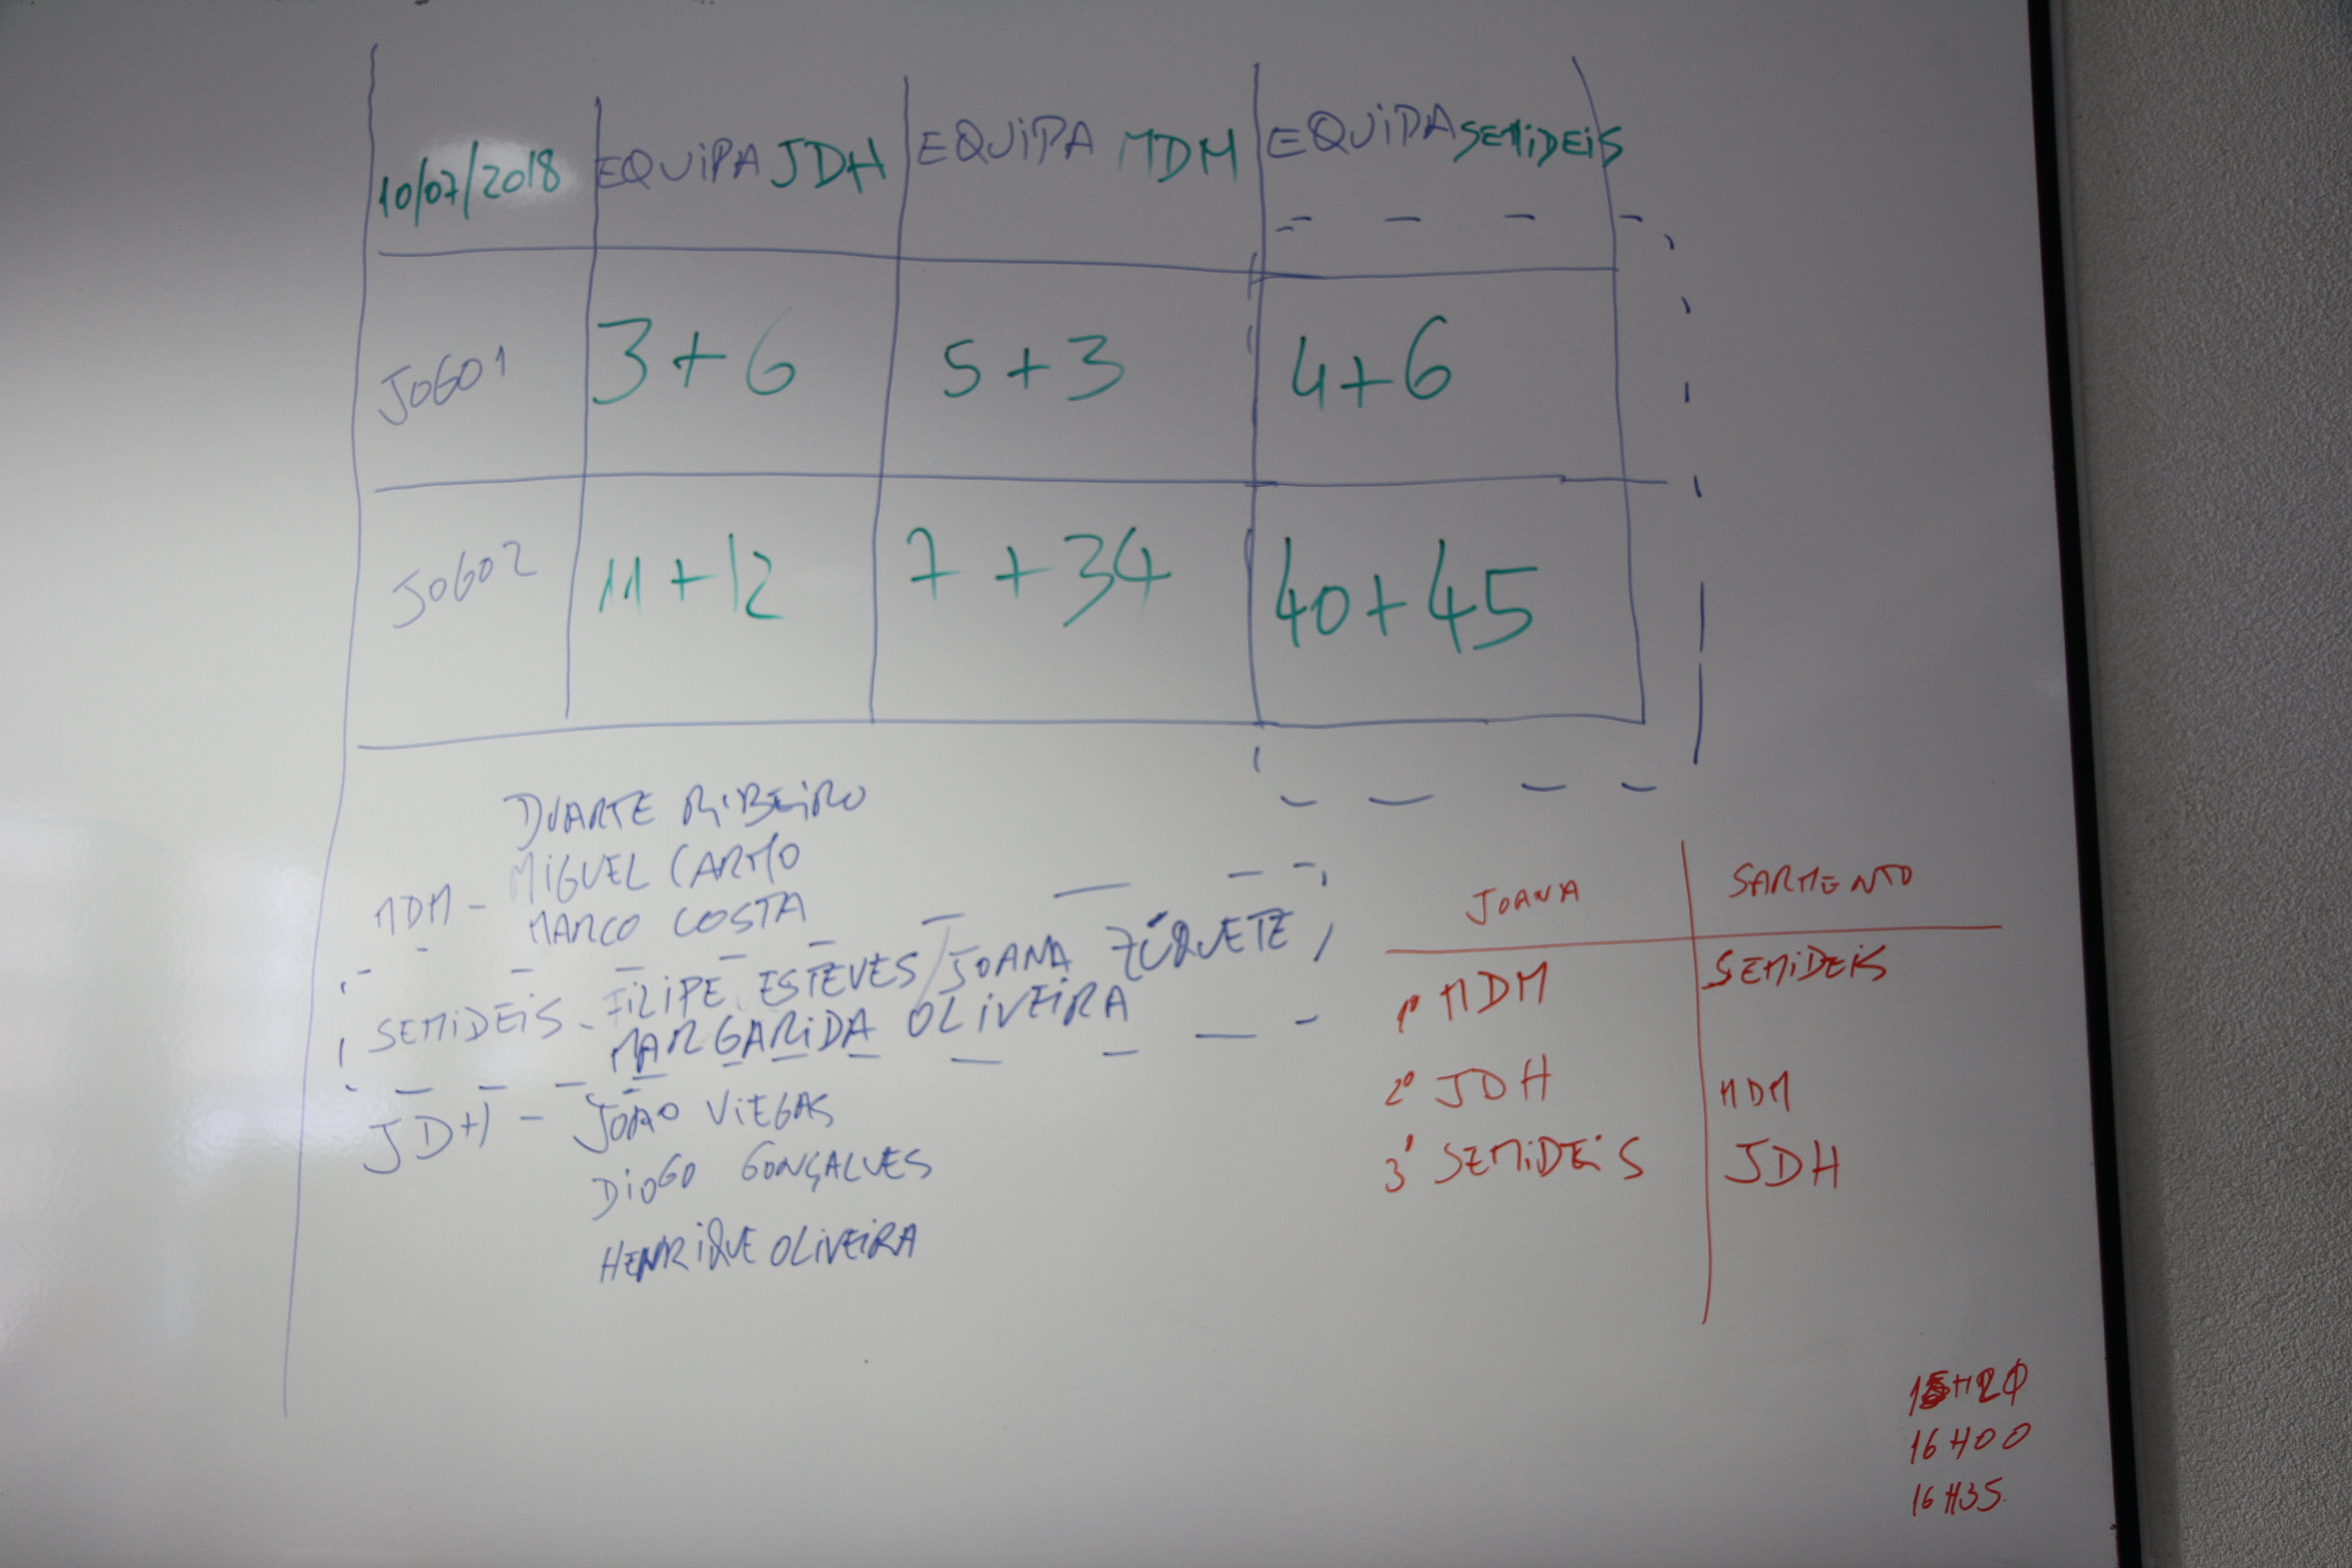 10/07/2018 EQUIPA JDH EQUIPA MDM EQUIPA SEMIDEIS
JOGO 1 3+6 5+3 4+6
JOGO 2 11+12 7+34 40+45
DUARTE RIBEIRO
MDM - MIGUEL CARMO
MARCO COSTA
SEMIDEIS - FILIPE ESTEVES / JOANA ZÚQUETE
MARGARIDA OLIVEIRA
JDH - JOÃO VIEGAS
DIOGO GONÇALVES
HENRIQUE OLIVEIRA
JOANA SARMENTO
1º MDM SEMIDEIS
2º JDH MDM
3º SEMIDEIS JDH
15H20
16H00
16H35